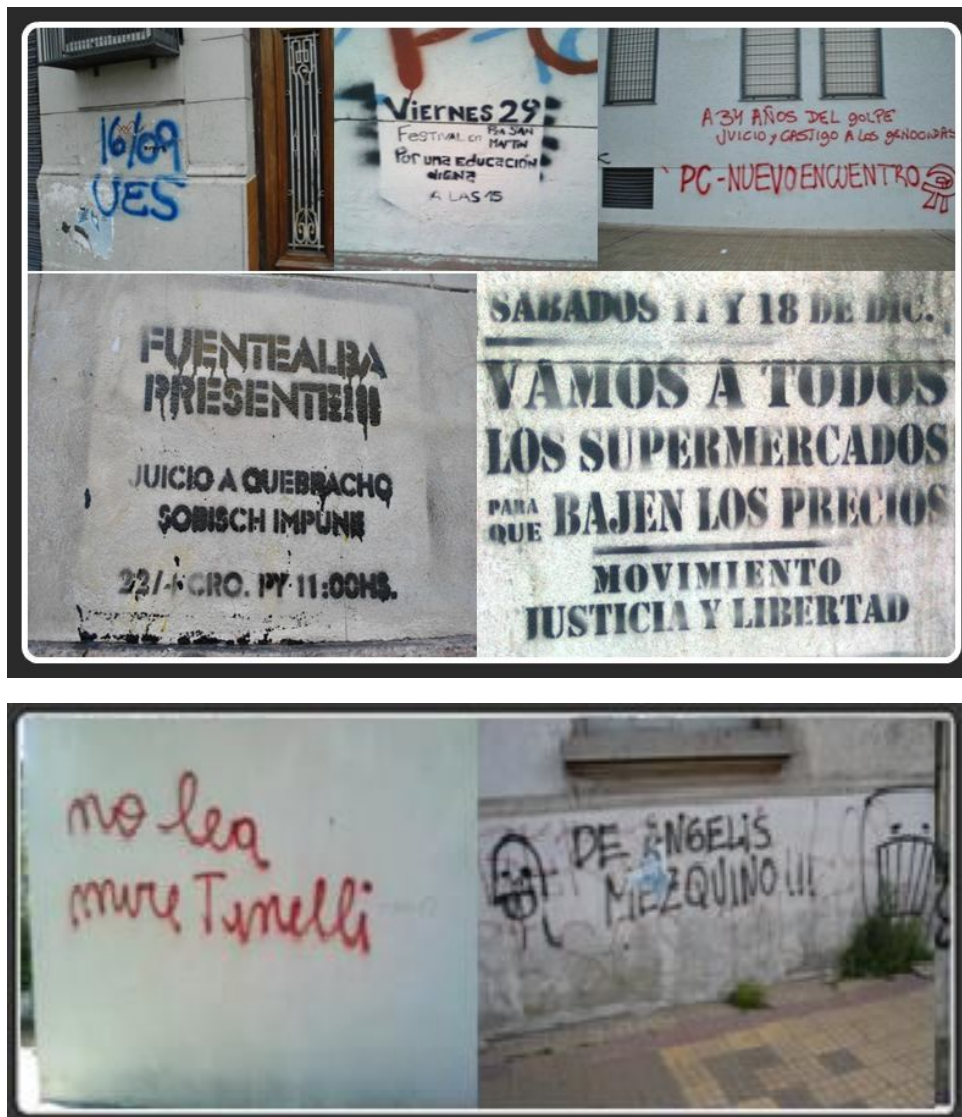 16/09
UES
VIERNES 29
FESTIVAL en Pza SAN MARTIN
Por una EDUCACIÓN
digna
A LAS 15
A 34 AÑOS DEL GOLPE
JUICIO y CASTIGO A LOS GENOCIDAS
PC-NUEVO ENCUENTRO
FUENTEALBA
PRESENTE!!!
JUICIO A QUEBRACHO
SOBISCH IMPUNE
22/4 CRO. PY 11:00HS.
SABADOS 11 Y 18 DE DIC.
VAMOS A TODOS
LOS SUPERMERCADOS
PARA QUE BAJEN LOS PRECIOS
MOVIMIENTO
JUSTICIA Y LIBERTAD
no lea
mire Tinelli
DE ANGELIS
MEZQUINO!!!